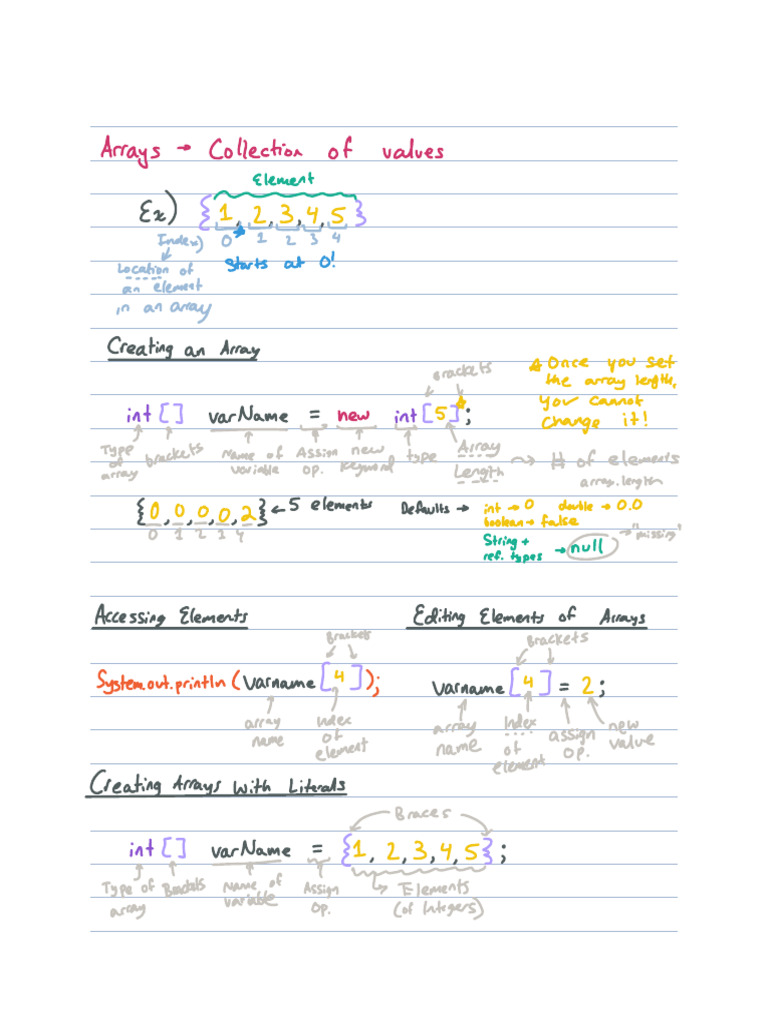 Arrays → Collection of values
Element
Ex) {1, 2, 3, 4, 5}
Index) 0 * 1 2 3 4
Starts at 0!
Location of
an element
in an array
Creating an Array
Brackets
* Once you set
the array length,
you cannot
change it!
int [] varName = new int [5]*;
Type of array
brackets
Name of variable
Assign op.
new keyword
type
Array Length → # of elements
array.length
{0, 0, 0, 0, 2} ← 5 elements
0 1 2 3 4
Defaults → int → 0 double → 0.0
boolean → false
String + ref. types → null → "missing"
Accessing Elements
Brackets
System.out.println(varname[4]);
array name
Index of element
Editing Elements of Arrays
Brackets
varname[4] = 2;
array name
Index of element
assign op.
new value
Creating Arrays with Literals
Braces
int [] varName = {1, 2, 3, 4, 5};
Type of array
Brackets
Name of variable
Assign Op.
→ Elements
(of Integers)